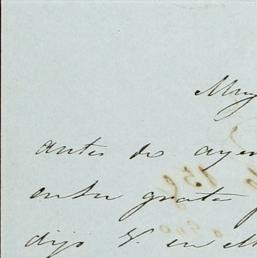 Muy
antes de ayer
entre grata
dijo V. en M